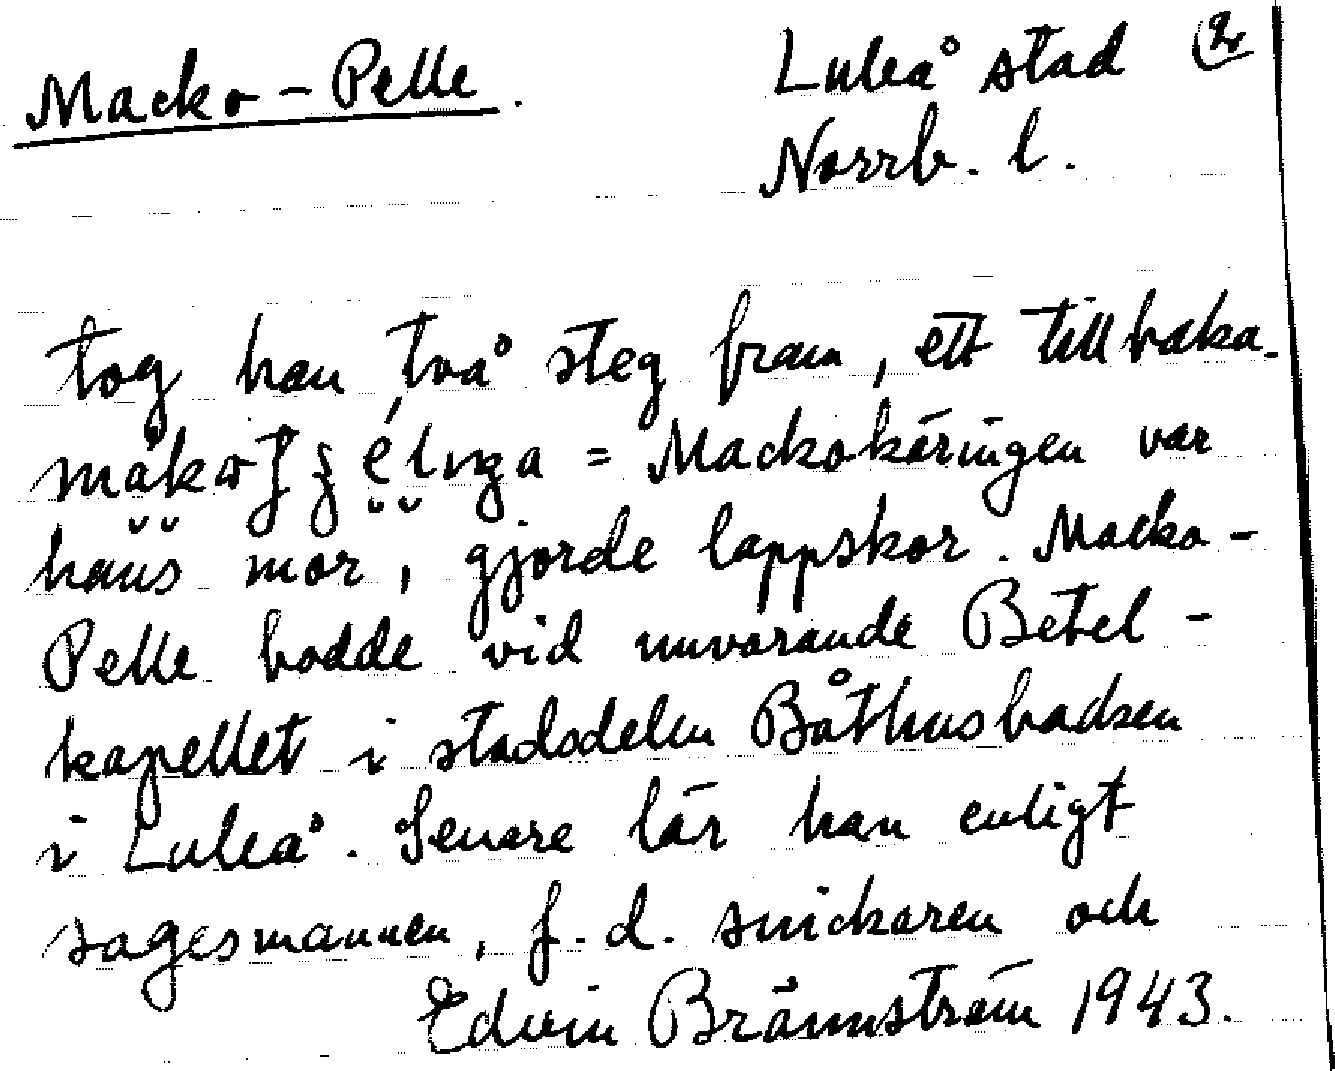 Macko-Pelle. Luleå stad (2
Norrb. l.
tog han två steg fram, ett tillbaka.
= Mackokäringen var
hans mor, gjorde lappskor. Macko-
Pelle bodde vid nuvarande Betel-
kapellet i stadsdelen Båthusbacken
i Luleå. Senare lär han enligt
sagesmannen, f.d. snickaren och
Edvin Brännström 1943.